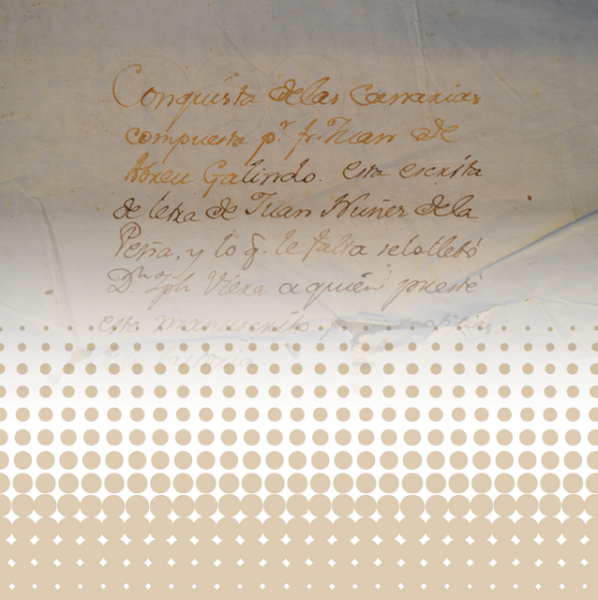 Conquista de las Canarias
compuesta p.r fr. Juan de
Abreu Galindo. esta escrita
de letra de Juan Nuñez de la
Peña, y lo q. le falta se lo llebó
D.n Jph Viera a quien presté
este manuscrito